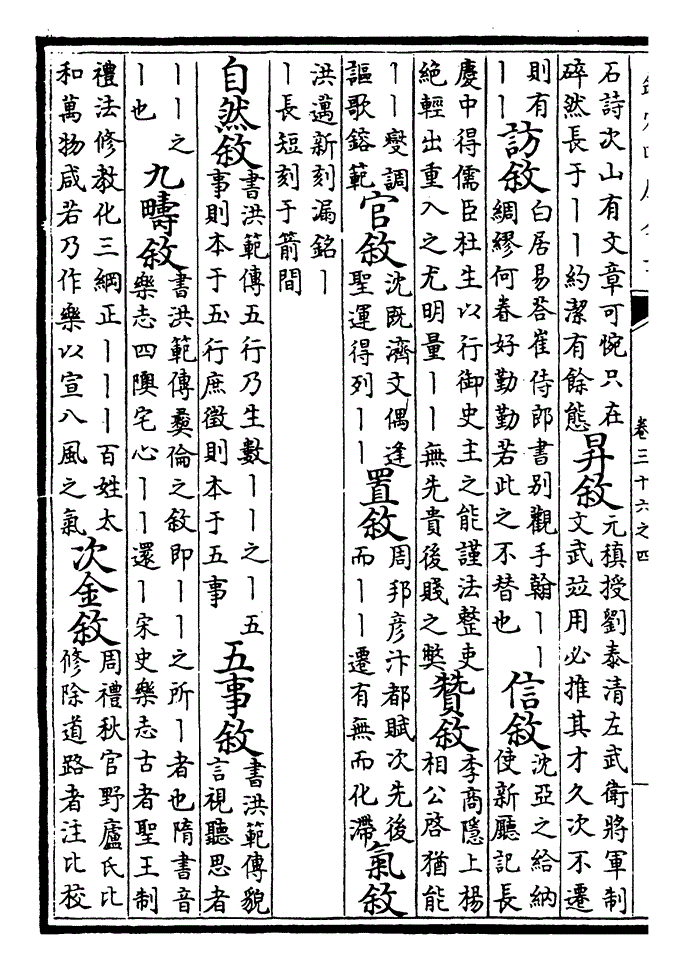 卷三十六之四
石詩次山有文章可惋只在
碎然長于丨丨約潔有餘態
昇敘
元稹授劉泰清左武衛將軍制
文武竝用必推其才久次不遷
則有
丨丨
訪敘
白居易答崔侍郎書別觀手翰丨丨
綢繆何眷好勤勤若此之不替也
信敘
沈亞之給納
使新廳記長
慶中得儒臣杜生以行御史主之能謹法整吏
絶輕出重入之尤明量丨丨無先貴後賤之弊
贊敘
李商隱上楊
相公啓猶能
丨丨燮調
謳歌鎔範
官敘
沈既濟文偶逢
聖運得列丨丨
置敘
周邦彦汴都賦次先後
而丨丨遷有無而化滯
氣敘
洪邁新刻漏銘丨
丨長短刻于箭間
自然敘
書洪範傳五行乃生數丨丨之丨五
事則本于五行庶徵則本于五事
五事敘
書洪範傳貌
言視聽思者
丨丨之
丨也
九疇敘
書洪範傳彝倫之敘即丨丨之所丨者也隋書音
樂志四隩宅心丨丨還丨宋史樂志古者聖王制
禮法修教化三綱正丨丨丨百姓太
和萬物咸若乃作樂以宣八風之氣
次金敘
周禮秋官野廬氏比
修除道路者注比校